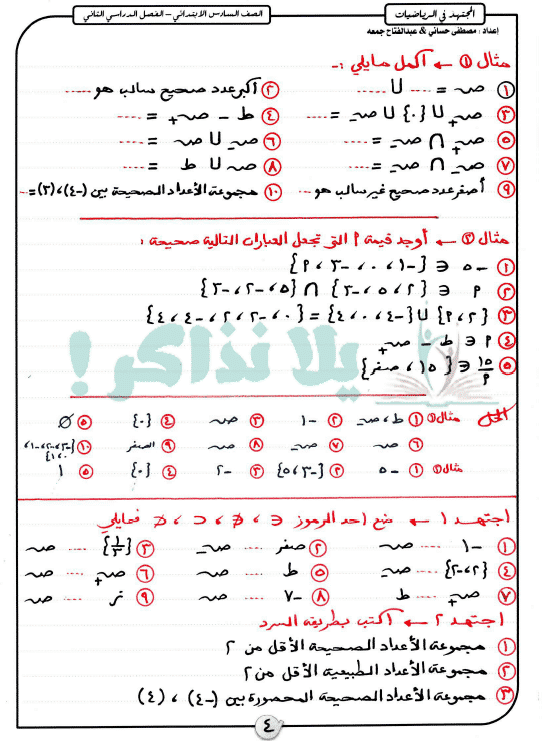 المجتهد في الرياضيات
الصف السادس الابتدائي – الفصل الدراسي الثاني
إعداد : مصطفى حساني & عبدالفتاح جمعه
مثال ① ← أكمل مايلي :-
① صـ = ---- U ----
② أكبر عدد صحيح سالب هو ----
③ صـ+ U {٠} U صـ- = ----
④ ط - صـ+ = ----
⑤ صـ+ ∩ صـ- = ----
⑥ صـ- U صـ = ----
⑦ صـ ∩ صـ- = ----
⑧ صـ U ط = ----
⑨ أصغر عدد صحيح غير سالب هو ----
⑩ مجموعة الأعداد الصحيحة بين (-٤)، (٢) = ---
مثال ② ← أوجد قيمة م التى تجعل العبارات التالية صحيحة :
① -٥ ∈ {-١، ٠، -٣، م}
② م ∈ {٢، ٥، -٣} ∩ {٥، -٢، -٣}
③ {٢، م} U {-٤، ٠، ٤} = {٠، -٢، ٢، -٤، ٤}
④ م ∈ ط - صـ+
⑤ ١٥/م ∈ {١٥، صفر}
يلا نذاكر!
الحل
مثال① ① ط، صـ- ② -١ ③ صـ ④ {٠} ⑤ Ø
⑥ صـ ⑦ صـ- ⑧ صـ ⑨ الصفر ⑩ {-٣، -٢، -١، ٠، ١}
مثال② ① -٥ ② {-٣، ٥} ③ -٢ ④ {٠} ⑤ ١
اجتهد ١ ← ضع احد الرموز ∈ ، ∉ ، ⊂ ، ⊄ فيمايلي
① -١ ---- صـ
② صفر ---- صـ-
③ {١/٣} ---- صـ
④ {٢، -٢} ---- صـ-
⑤ ط ---- صـ
⑥ صـ+ ---- صـ
⑦ صـ+ ---- ط
⑧ -٧ ---- صـ
⑨ ---- صـ
اجتهد ٢ ← اكتب بطريقه السرد
① مجموعة الأعداد الصحيحة الأقل من ٢
② مجموعة الأعداد الطبيعية الأقل من ٢
③ مجموعة الأعداد الصحيحة المحصورة بين (-٤) ، (٤)
٤